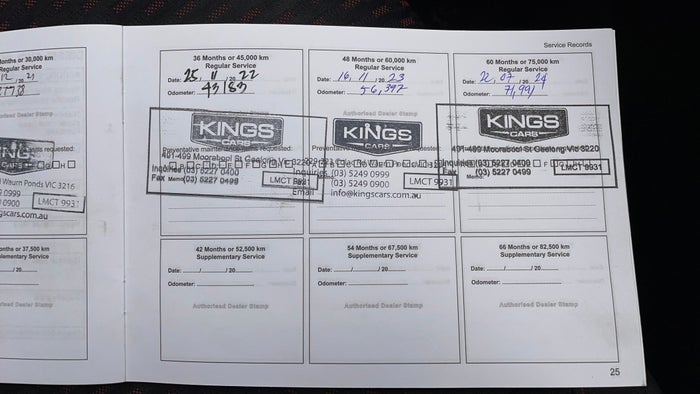 Service Records
onths or 30,000 km
Regular Service
12 21
Authorised Dealer Stamp
n Ponds VIC 3216
0999
0900
gscars.com.au
LMCT 993
onths or 37,500 km
lementary Service
/ 20
rised Dealer Stamp
36 Months or 45,000 km
Regular Service
Date: 25, 11 / 20 22
Odometer: 43183
KINGS
CARS
491-499 Moorabool St Geelong Vic 3220
Inquiries (03) 5227 0400
Fax Memo: (03) 5227 0499
LMCT 9931
48 Months or 60,000 km
Regular Service
Date: 16, 11 / 20 23
Odometer: 56,392
Authorised Dealer Stamp
KINGS
CARS
Inquiries (03) 5249 0999
(03) 5249 0900
Email info@kingscars.com.au
LMCT 9931
60 Months or 75,000 km
Regular Service
Date: 22, 07 / 20 24
Odometer: 71,991
KINGS
CARS
491-499 Moorabool St Geelong Vic 3220
Inquiries (03) 5227 0400
Fax (03) 5227 0499
Memo:
LMCT 9931
42 Months or 52,500 km
Supplementary Service
Date: / / 20
Odometer:
Authorised Dealer Stamp
54 Months or 67,500 km
Supplementary Service
Date: / / 20
Odometer:
Authorised Dealer Stamp
66 Months or 82,500 km
Supplementary Service
Date: / / 20
Odometer:
Authorised Dealer Stamp
25